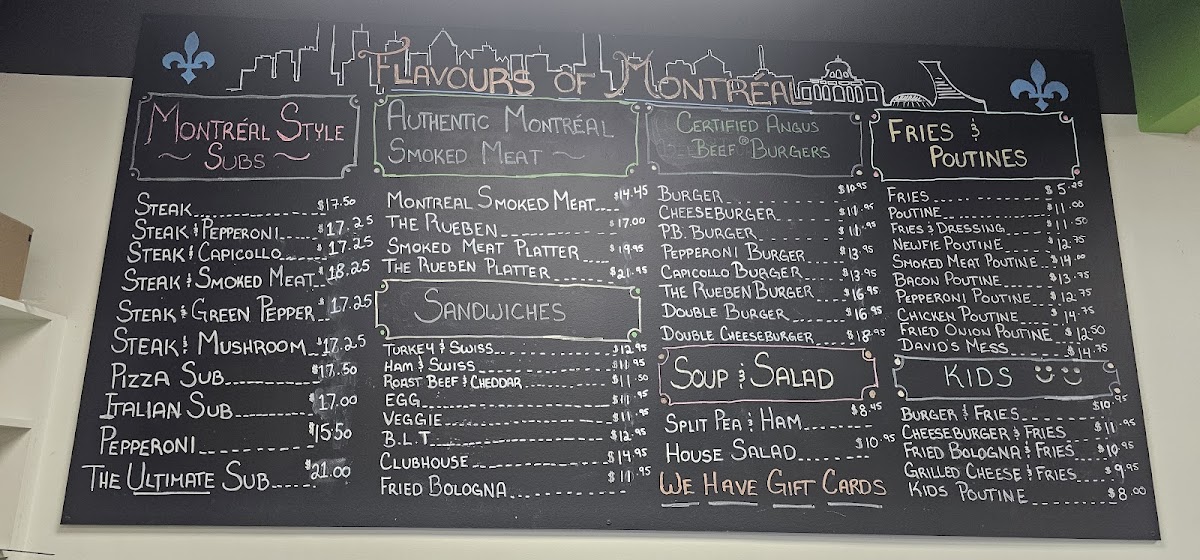 Flavours of Montréal
Montréal Style
~ Subs ~
Steak $17.50
Steak & Pepperoni $17.25
Steak & Capicollo $17.25
Steak & Smoked Meat $18.25
Steak & Green Pepper $17.25
Steak & Mushroom $17.25
Pizza Sub $17.50
Italian Sub $17.00
Pepperoni $15.50
The Ultimate Sub $21.00
Authentic Montréal
Smoked Meat ~
Montreal Smoked Meat $14.45
The Rueben $17.00
Smoked Meat Platter $19.95
The Rueben Platter $21.95
Sandwiches
Turkey & Swiss $12.95
Ham & Swiss $11.95
Roast Beef & Cheddar $11.50
Egg $11.95
Veggie $11.95
B.L.T $12.95
Clubhouse $14.95
Fried Bologna $11.95
Certified Angus
Beef® Burgers
Burger $10.95
Cheeseburger $11.95
P.B. Burger $11.95
Pepperoni Burger $13.95
Capicollo Burger $13.95
The Rueben Burger $16.95
Double Burger $16.95
Double Cheeseburger $18.95
Soup & Salad
Split Pea & Ham $8.45
House Salad $10.95
We Have Gift Cards
Fries &
Poutines
Fries $5.25
Poutine $11.00
Fries & Dressing $11.50
Newfie Poutine $12.75
Smoked Meat Poutine $14.00
Bacon Poutine $13.75
Pepperoni Poutine $12.75
Chicken Poutine $14.75
Fried Onion Poutine $12.50
David's Mess $14.75
Kids
Burger & Fries $10.95
Cheeseburger & Fries $11.95
Fried Bologna & Fries $10.95
Grilled Cheese & Fries $9.95
Kids Poutine $8.00